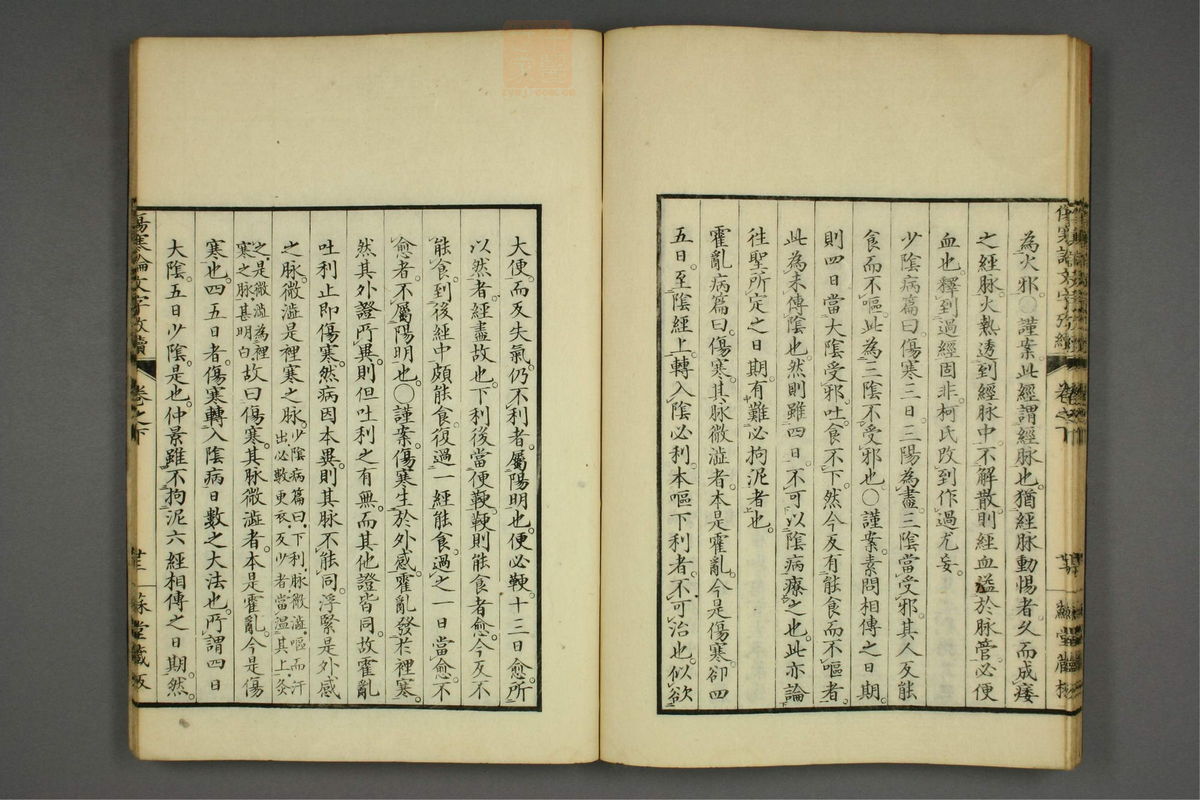 為火邪。○謹案。此經謂經脉也。猶經脉動惕者。久而成痿
之經脉。火熱透到經脉中。不解散。則經血溢於脉管。必便
血也。釋到過經固非。柯氏改到作過尤妄。
少陰病篇曰。傷寒三日。三陽為盡。三陰當受邪。其人反能
食而不嘔。此為三陰不受邪也。○謹案。素問相傳之日期。
則四日當大陰受邪。吐食不下。然今反有能食而不嘔者。
此為未傳陰也。然則雖四日。不可以陰病療之也。此亦論
往聖所定之日期。有難必拘泥者也。
霍亂病篇曰。傷寒。其脉微澁者。本是霍亂。今是傷寒。卻四
五日。至陰經上。轉入陰必利。本嘔下利者。不可治也。似欲
大便。而反失氣。仍不利者。屬陽明也。便必鞕。十三日愈。所
以然者。經盡故也。下利後當便鞕。鞕則能食者愈。今反不
能食。到後經中。頗能食。復過一經能食。過之一日當愈。不
愈者。不屬陽明也。○謹案。傷寒生於外感。霍亂發於裡寒。
然其外證所異。則但吐利之有無。而其他證皆同。故霍亂
吐利止即傷寒。然病因本異。則其脉不能同。浮緊是外感
之脉。微澁是裡寒之脉。少陰病篇曰。下利。脉微澁。嘔而汗
出。必數更衣。反少者。當溫其上。灸
之。是微澁為裡
寒之脉甚明白。故曰傷寒。其脉微澁者。本是霍亂。今是傷
寒也。四五日者。傷寒轉入陰病日數之大法也。所謂四日
大陰。五日少陰是也。仲景雖不拘泥六經相傳之日期。然
傷寒論文字攷續
卷之下